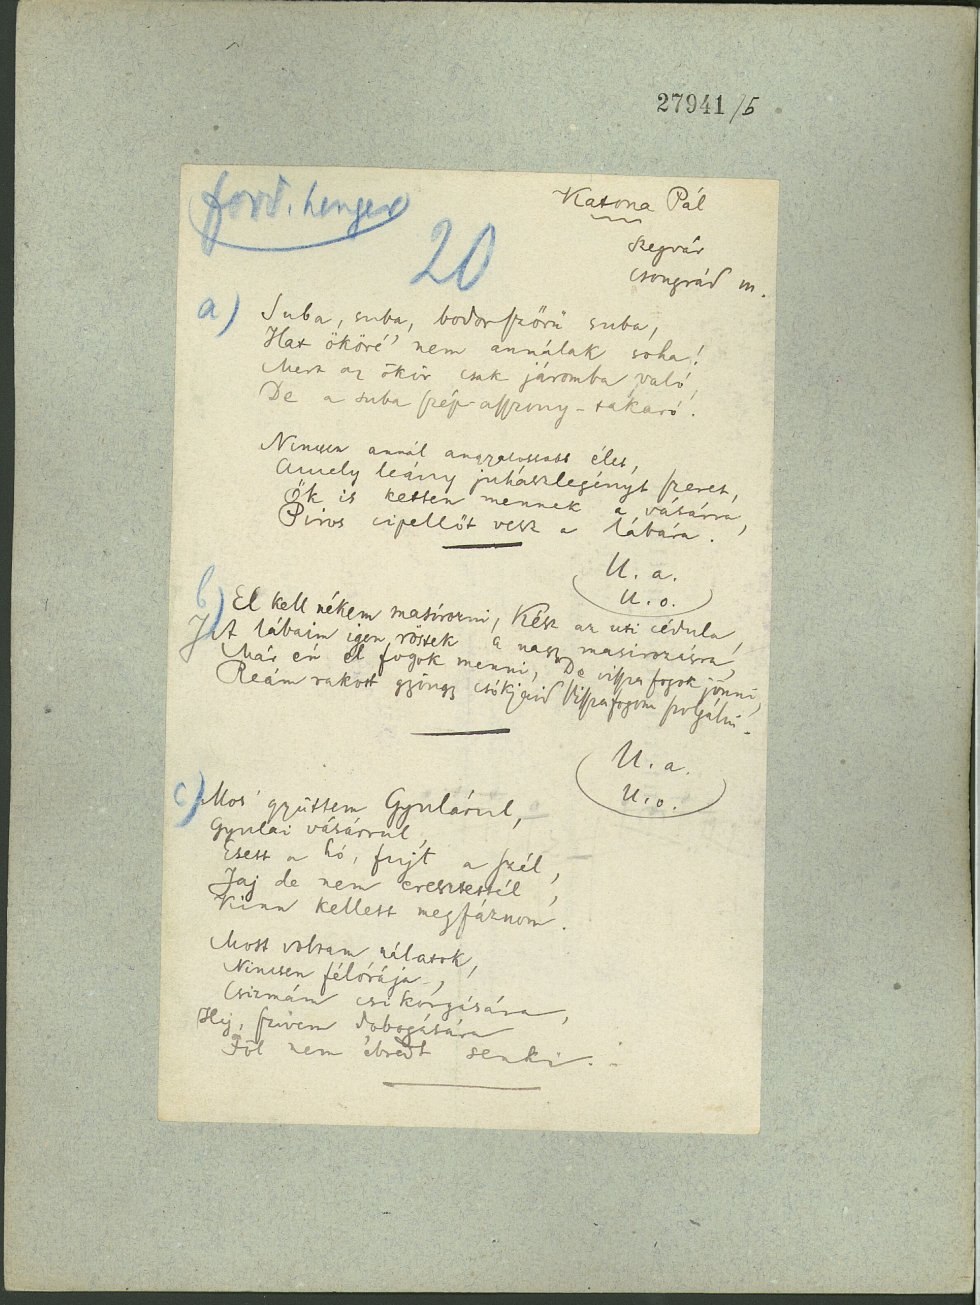 27941/5
ford. henger
20
Katona Pál
Szegvár
Csongrád m.
a)
Suba, suba, bodorszőrű suba,
Hat ököré' nem annálak soha!
Mert az ökör csak járomba való,
De a suba szép-asszony-takaró.
Nincsen annál angyalosabb élet,
Amely leány juhászlegényt szeret,
Ők is ketten mennek a vásárra,
Piros cipellőt vesz a lábára.
U.a.
U.o.
b)
El kell nékem masírozni, Kész az uti cédula,
A lábaim igen rösték a nagy masirozásra,
Már én el fogok menni, De vissza fogok jönni,
Reám rakott gyöngy csókjaid Visszafogom szolgálni.
U.a.
U.o.
c)
Mos' gyüttem Gyulárul,
Gyulai vásárrul,
Esett a hó, fujt a szél,
Jaj de nem eresztettél,
Kinn kellett megfáznom.
Most voltam nálatok,
Nincsen félórája,
Csizmám csikorgására,
Hej, szivem dobogására
Föl nem ébredt senki.